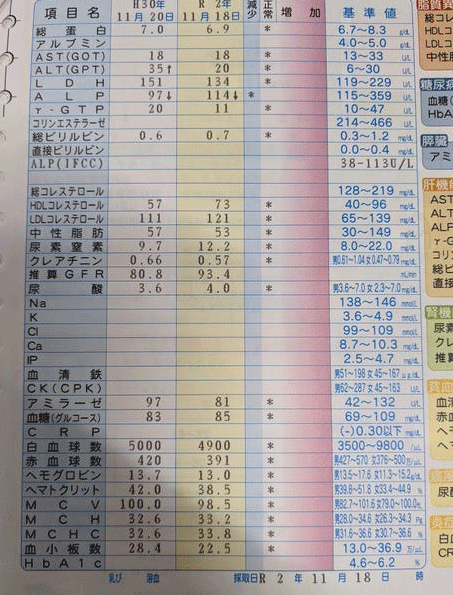 項目名 H30年 11月20日 R 2年 11月18日 減少 正常 増加 基準値
総蛋白 7.0 6.9 * 6.7〜8.3 g/dL
アルブミン 4.0〜5.0 g/dL
AST(GOT) 18 18 * 13〜33 U/L
ALT(GPT) 35↑ 20 * 6〜30 U/L
LDH 151 134 * 119〜229 U/L
ALP 97↓ 114↓ * 115〜359 U/L
γ-GTP 20 11 * 10〜47 U/L
コリンエステラーゼ 214〜466 U/L
総ビリルビン 0.6 0.7 * 0.3〜1.2 mg/dL
直接ビリルビン 0.0〜0.4 mg/dL
ALP(IFCC) 38-113U/L
総コレステロール 128〜219 mg/dL
HDLコレステロール 57 73 * 40〜96 mg/dL
LDLコレステロール 111 121 * 65〜139 mg/dL
中性脂肪 57 53 * 30〜149 mg/dL
尿素窒素 9.7 12.2 * 8.0〜22.0 mg/dL
クレアチニン 0.66 0.57 * 男0.61〜1.04 女0.47〜0.79 mg/dL
推算GFR 80.8 93.4 mL/min
尿酸 3.6 4.0 * 男3.6〜7.0 女2.3〜7.0 mg/dL
Na 138〜146 mmol/L
K 3.6〜4.9 mmol/L
Cl 99〜109 mmol/L
Ca 8.7〜10.3 mg/dL
IP 2.5〜4.7 mg/dL
血清鉄 男51〜198 女45〜167 μg/dL
CK(CPK) 男62〜287 女45〜163 U/L
アミラーゼ 97 81 * 42〜132 U/L
血糖(グルコース) 83 85 * 69〜109 mg/dL
CRP (-)0.30以下 mg/dL
白血球数 5000 4900 * 3500〜9800 /μL
赤血球数 420 391 * 男427〜570 女376〜500 万/μL
ヘモグロビン 13.7 13.0 * 男13.5〜17.6 女11.3〜15.2 g/dL
ヘマトクリット 42.0 38.5 * 男39.8〜51.8 女33.4〜44.9 %
MCV 100.0 98.5 * 男82.7〜101.6 女79.0〜100.0 fL
MCH 32.6 33.2 * 男28.0〜34.6 女26.3〜34.3 pg
MCHC 32.6 33.8 * 男31.6〜36.6 女30.7〜36.6 %
血小板数 28.4 22.5 * 13.0〜36.9 万/μL
HbA1c 4.6〜6.2 %
乳び 溶血 採取日 R 2年 11月 18日 時
脂質異
総コレ
HDLコ
LDLコ
中性脂
糖尿病
血糖(
HbA
膵臓
アミ
肝機
AST
ALT
ALP
γ-G
コリ
総ビ
直接
腎機
尿素
クレ
推算
貧血
血清
赤血
ヘモ
ヘマ
尿酸
炎症
白血
CR